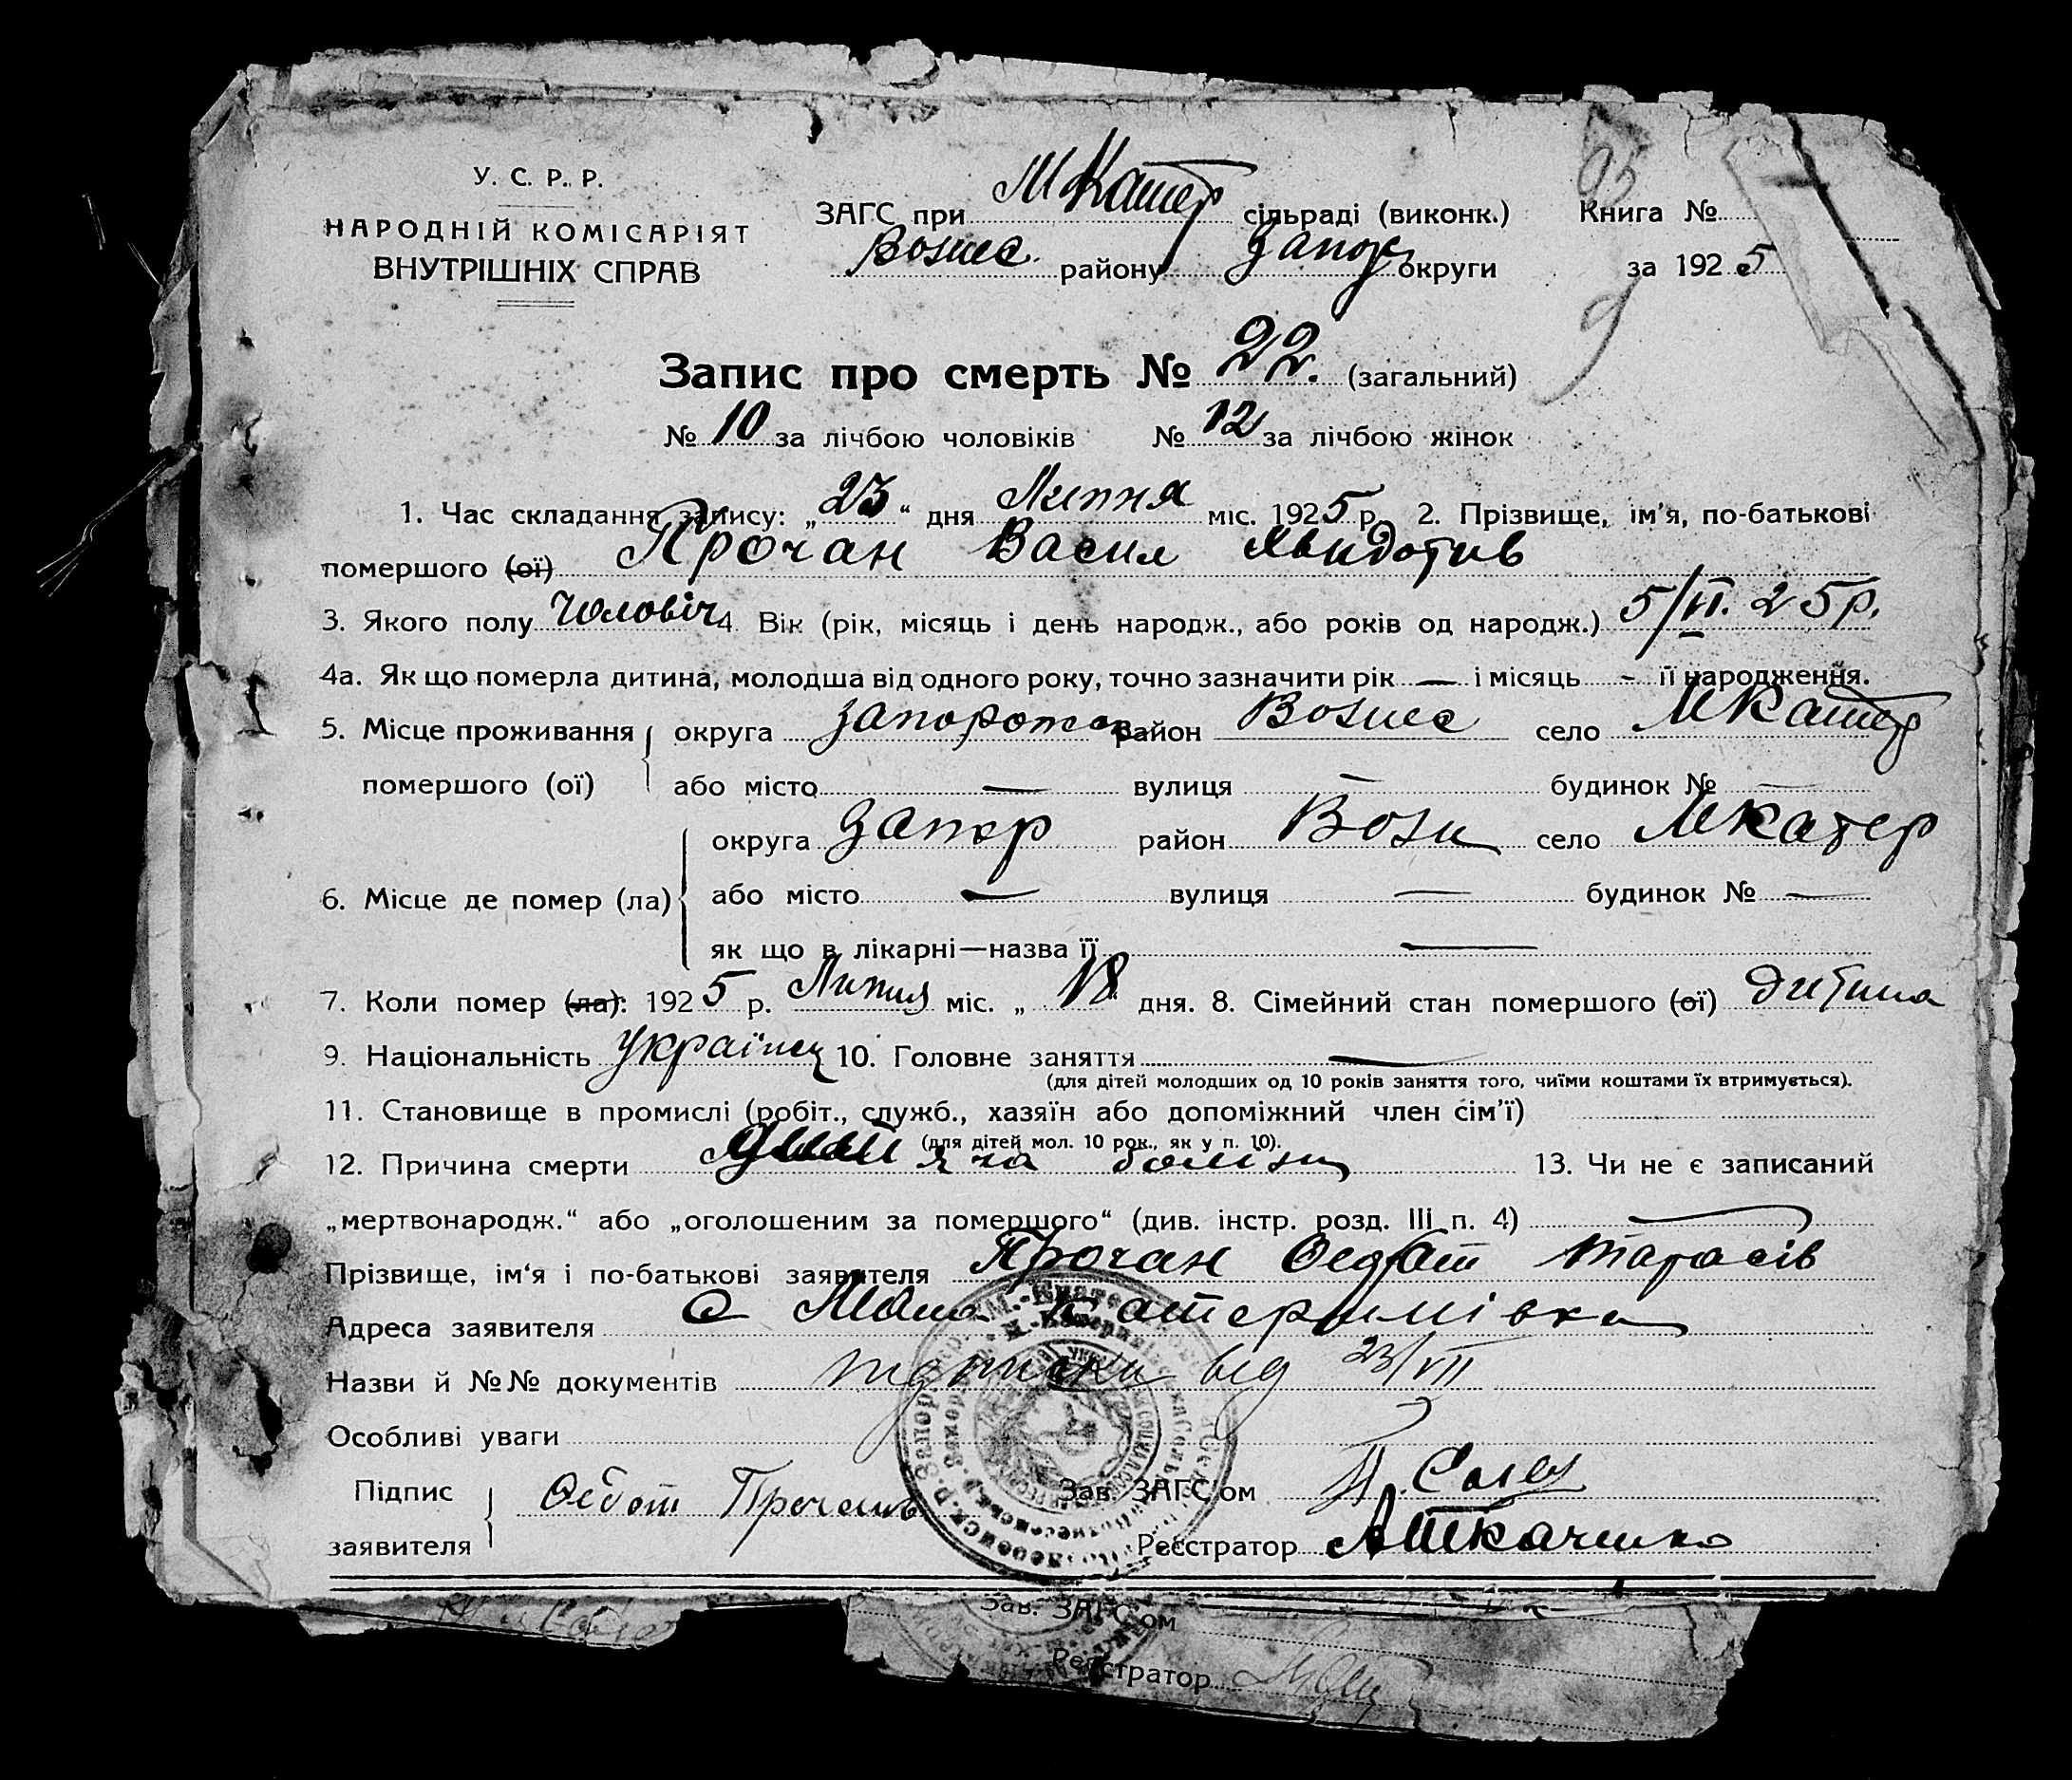 У. С. Р. Р.
НАРОДНІЙ КОМІСАРІЯТ
ВНУТРІШНІХ СПРАВ
ЗАГС при МКатер сільраді (виконк.)
Вознес. району Запор округи
95
Книга №
за 1925
Запис про смерть № 22. (загальний)
№ 10 за лічбою чоловіків № 12 за лічбою жінок
1. Час складання запису: „23“ дня Липня міс. 1925 р. 2. Прізвище, ім'я, по-батькові
помершого (ої) Прочан Васил
3. Якого полу Чоловіч 4. Вік (рік, місяць і день народж., або років од народж.) 5/VI. 25р.
4а. Як що померла дитина, молодша від одного року, точно зазначити рік — і місяць - її народження.
5. Місце проживання помершого (ої) округа Запорож район Вознес село МКатер
або місто — вулиця — будинок № —
6. Місце де помер (ла) округа Запор район Возн село МКатер
або місто — вулиця — будинок № —
як що в лікарні—назва її —
7. Коли помер (ла): 1925 р. Липня міс. „18 дня. 8. Сімейний стан помершого (ої) дитина
9. Національність українец 10. Головне заняття —
(для дітей молодших од 10 років заняття того, чиїми коштами їх втримується).
11. Становище в промислі (робіт., служб., хазяїн або допоміжний член сім'ї)
(для дітей мол. 10 рок., як у п. 10).
12. Причина смерти 13. Чи не є записаний
„мертвонародж.“ або „оголошеним за помершого“ (див. інстр. розд. III п. 4) —
Прізвище, ім'я і по-батькові заявителя Прочан Федот Тарасів
Адреса заявителя С Мала Катеринівка
Назви й №№ документів підписки від 23/VII
Особливі уваги
Підпис заявителя Федот Прочань
Зав. ЗАГС'ом
Реєстратор АТкаченко
Зав. ЗАГС'ом
Реєстратор